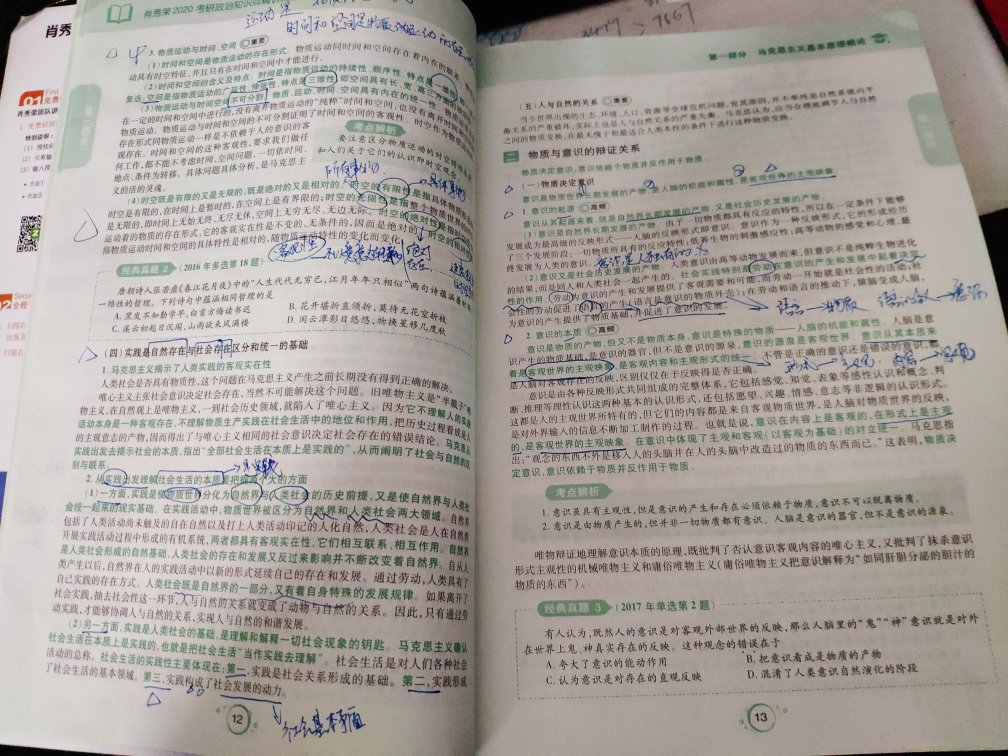 肖秀荣2020考研政治知识点精
3. 物质运动与时间、空间 重要
(1)时间和空间是物质运动的存在形式。物质运动同时间和空间存在着内在的联系。
动具有时空特征,并且只有在时间和空间中才能进行。
(2)时间和空间的含义及特点。时间是指物质运动的持续性、顺序性,特点是一维性,
复返;空间是指物质运动的广延性、伸张性,特点是三维性,即空间具有长、宽、高三方面
(3)物质运动与时间空间不可分割。物质、运动、时间、空间具有内在的统一性。
在一定的时间和空间中进行的,没有离开物质运动的“纯粹”时间和空间,也没有离开时间和空间的
物质运动。物质运动与时间和空间的不可分割证明了时间和空间的客观性。时空作为物质运动
存在形式同物质运动一样是不依赖于人的意识的客
观存在。时间和空间的这种客观性,要求我们做任
何工作,都不能不考虑时间、空间问题,一切依时间、
地点、条件为转移。具体问题具体分析,是马克思主
义的活的灵魂。
考点辨析
要注意区分物质运动的时空特性
和人们关于它们的认识即时空观念
(4)时空既是有限的又是无限的,既是绝对的又是相对的。时空的有限性是指具体物质形态的
时空是有限的,在时间上是暂时的,在空间上是有界限的;时空的无限性是指整个物质世界的
是无限的,即时间上无始无终、无尽无休,空间上无穷无尽、无边无际。时空的绝对性是指时空
运动着的物质的存在形式,它的客观实在性是不变的、无条件的,因而是绝对的;时空的相对性
指物质运动时间和空间的具体特性是相对的,随物质运动特性的变化而变化。
经典真题 2 (2016年多选第18题)
唐朝诗人张若虚《春江花月夜》中的“人生代代无穷已,江月年年只相似”两句诗蕴涵着时间
一维性的哲理。下列诗句中蕴涵相同哲理的是
A. 黑发不知勤学早,白首方悔读书迟
B. 花开堪折直须折,莫待无花空折枝
C. 溪云初起日沉阁,山雨欲来风满楼
D. 闲云潭影日悠悠,物换星移几度秋
(四)实践是自然存在与社会存在区分和统一的基础
1. 马克思主义揭示了人类实践的客观实在性
人类社会是否具有物质性,这个问题在马克思主义产生之前长期没有得到正确的解决。
唯心主义主张社会意识决定社会存在,当然不可能解决这个问题。旧唯物主义是“半截子”唯
物主义,在自然观上是唯物主义,一到社会历史领域,就陷入了唯心主义。因为它不理解人的实践
活动本身是一种客观存在,不理解物质生产实践在社会生活中的地位和作用,把历史过程看成是人
的主观意志的产物,因而得出了与唯心主义相同的社会意识决定社会存在的错误结论。马克思从
实践出发去揭示社会的本质,指出“全部社会生活在本质上是实践的”,从而阐明了社会与自然的区
别与联系。
2. 从实践出发理解社会生活的本质要把握两个大的方面
(1)一方面,实践是使物质世界分化为自然界与人类社会的历史前提,又是使自然界与人类社
会统一起来的现实基础。在实践活动中,物质世界被区分为自然界和人类社会两大领域。自然界
包括了人类活动尚未触及的自在自然以及打上人类活动印记的人化自然,人类社会是人在自然界
开展实践活动过程中形成的有机系统,两者都具有客观实在性,它们相互联系、相互作用。自然界
是人类社会形成的自然基础,人类社会的存在和发展又反过来影响并不断改变着自然界。自从人
类产生以后,自然界在人的实践活动中以新的形式延续自己的存在和发展。通过劳动,人类具有了
自己实践的存在方式。人类社会既是自然界的一部分,又有着自身特殊的发展规律。如果离开了
社会实践,抽去社会性这一环节,人与自然的关系就变成了动物与自然的关系。因此,只有通过劳
动实践,才能够协调人与自然的关系,实现人与自然的和谐发展。
(2)另一方面,实践是人类社会的基础,是理解和解释一切社会现象的钥匙。马克思主义确认
社会生活在本质上是实践的,也就是把社会生活“当作实践去理解”。社会生活是对人们各种社会
活动的总称。社会生活的实践性主要体现在:第一,实践是社会关系形成的基础。第二,实践形成
了社会生活的基本领域。第三,实践构成了社会发展的动力。
12
第一部分 马克思主义基本原理概论
(五)人与自然的关系 重要
当今世界出现的生态、环境、人口、资源等全球危机问题,究其原因,并不单纯是自然系统内平
衡关系的严重破坏,实际上也是人与自然关系的严重失衡。马克思认为,应当合理地调节人与自然
之间的物质变换,在最无愧于和最适合人类本性的条件下进行这种物质变换。
二 物质与意识的辩证关系
物质决定意识,意识依赖于物质并反作用于物质。
(一)物质决定意识
意识是物质世界长期发展的产物,是人脑的机能和属性,是客观世界的主观映象
1. 意识的起源 高频
意识从其起源来看,既是自然界长期发展的产物,又是社会历史发展的产物。
(1)意识是自然界长期发展的产物。由于一切物质都具有反应的特性,所以在一定条件下能够
发展成为最高级的反映形式——人脑的反映形式即意识。意识作为一种反映形式,它的形成经历
了三个发展阶段:一切物质所具有的反应特性;低等生物的刺激感应性;高等动物的感觉和心理,最
终发展为人类的意识。
(2)意识又是社会历史发展的产物。人类意识由高等动物心理发展而来,但意识不是纯粹生物进化
的结果,而是同人和人类社会一起产生的。社会实践特别是劳动在意识的产生和发展中起着决定
性的作用。(劳动)为意识的产生和发展提供了客观需要和可能,而劳动一开始就是社会性的活动;社
会性的劳动促进了语言的产生(语言是意识的物质外壳);在劳动和语言的推动下,猿脑变成人脑,
为意识的产生提供了物质基础,并促进了意识的发展。
2. 意识的本质 高频
意识是物质的产物,但又不是物质本身,意识是特殊的物质——人脑的机能和属性。人脑是意
识产生的物质基础,是意识的器官,但不是意识的源泉,意识的源泉是客观世界。意识从其本质来
看是客观世界的主观映象,是客观内容和主观形式的统一。不管是正确的意识还是错误的意识,都
是人脑对客观存在的反映,区别仅仅在于反映得是否正确。
意识是由各种反映形式共同组成的完整体系,它包括感觉、知觉、表象等感性认识和概念、判
断、推理等理性认识这两种基本的认识形式,还包括愿望、兴趣、情感、意志等非逻辑的认识形式。
这都是人的主观世界所特有的,但它们的内容都是来自客观物质世界,是人脑对物质世界的反映,
是对外界输入的信息不断加工制作的过程。也就是说,意识在内容上是客观的,在形式上是主观
的,是客观世界的主观映象。在意识中体现了主观和客观(以客观为基础)的对立统一。马克思指
出:“观念的东西不外是移入人的头脑并在人的头脑中改造过的物质的东西而已。”这表明,物质决
定意识,意识依赖于物质并反作用于物质。
考点辨析
1. 意识虽具有主观性,但是意识的产生和存在必须依赖于物质,意识不可以脱离物质。
2. 意识是由物质产生的,但并非一切物质都有意识。人脑是意识的器官,但不是意识的源泉。
唯物辩证地理解意识本质的原理,既批判了否认意识客观内容的唯心主义,又批判了抹杀意识
形式主观性的机械唯物主义和庸俗唯物主义(庸俗唯物主义把意识解释为“如同肝胆分泌的胆汁的
物质的东西”)。
经典真题 3 (2017年单选第2题)
有人认为,既然人的意识是对客观外部世界的反映,那么人脑里的“鬼”“神”意识就是对外
在世界上鬼、神真实存在的反映。这种观念的错误在于
A. 夸大了意识的能动作用
B. 把意识看成是物质的产物
C. 认为意识是对存在的直观反映
D. 混淆了人类意识自然演化的阶段
13